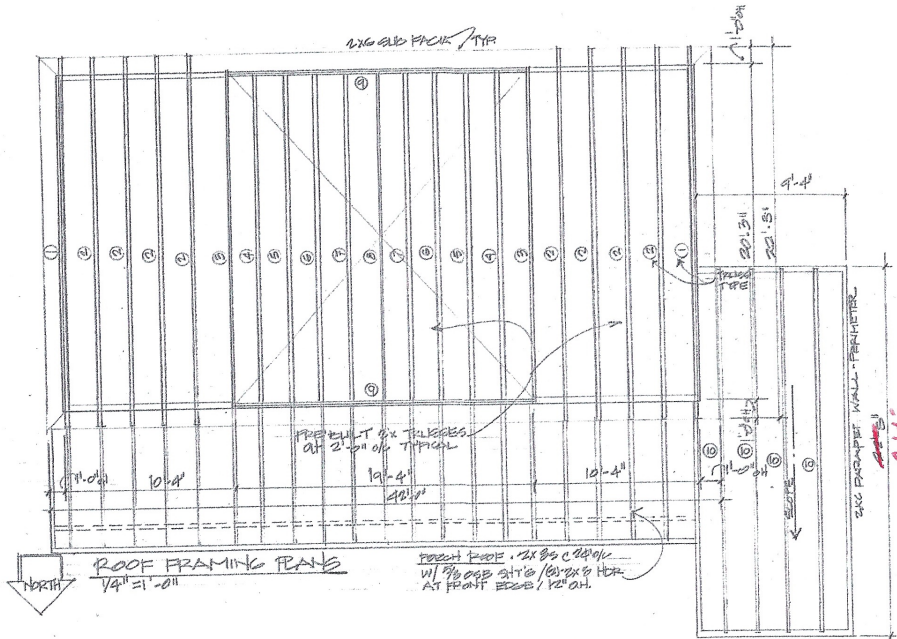 2X6 SUB FACIA / TYP.
1'-0" OH
9'-4"
20'.3"
22'.3"
9
1 2 2 2 2 3 4 5 6 7 8 7 6 5 4 3 2 2 2 2 1
TRUSS
TYPE
9
PREBUILT 2X TRUSSES
AT 2'-0" O/C TYPICAL
1'-0"
10'-4"
19'-4"
10'-4"
1'-0" OH
42'-0"
1'-0" OH
10
10
10
10
SLOPE
2X6 PARAPET WALL - PERIMETER
NORTH
ROOF FRAMING PLANS
1/4" = 1'-0"
PORCH ROOF . 2X8S @ 24" O/C
W/ 5/8 OSB SHT'G / (2) 2X8 HDR
AT FRONT EDGE / 12" O.H.